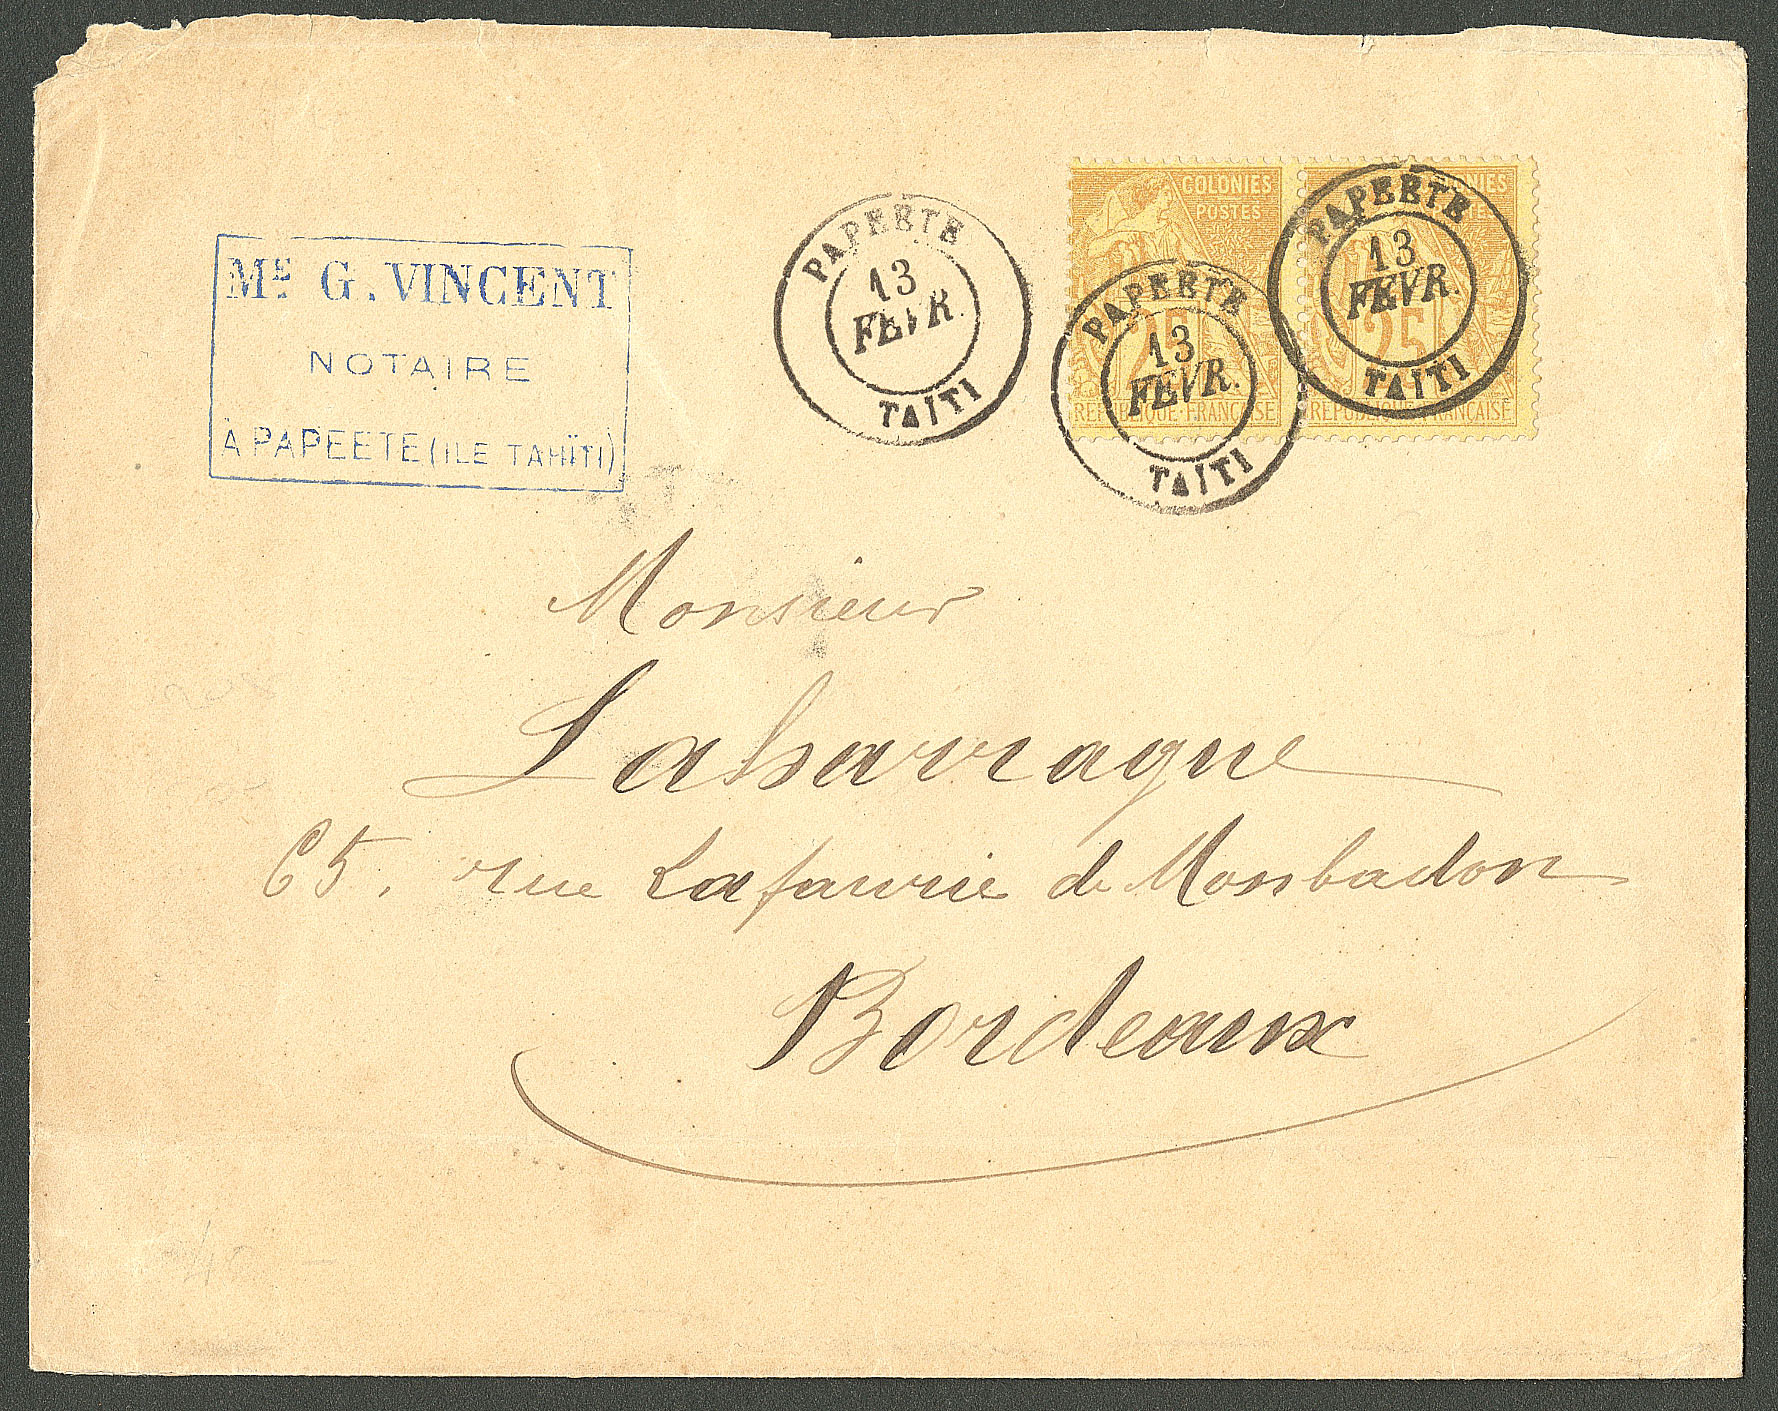 Me G. VINCENT
NOTAIRE
À PAPEETE (ILE TAHÏTI)
PAPEETE
13
FEVR.
TAITI
COLONIES
POSTES
25
REPUBLIQUE FRANÇAISE
PAPEETE
13
FEVR.
TAITI
COLONIES
POSTES
25
REPUBLIQUE FRANÇAISE
PAPEETE
13
FEVR.
TAITI
Monsieur
Labarraque
65, rue Lafaurie de Monbadon
Bordeaux